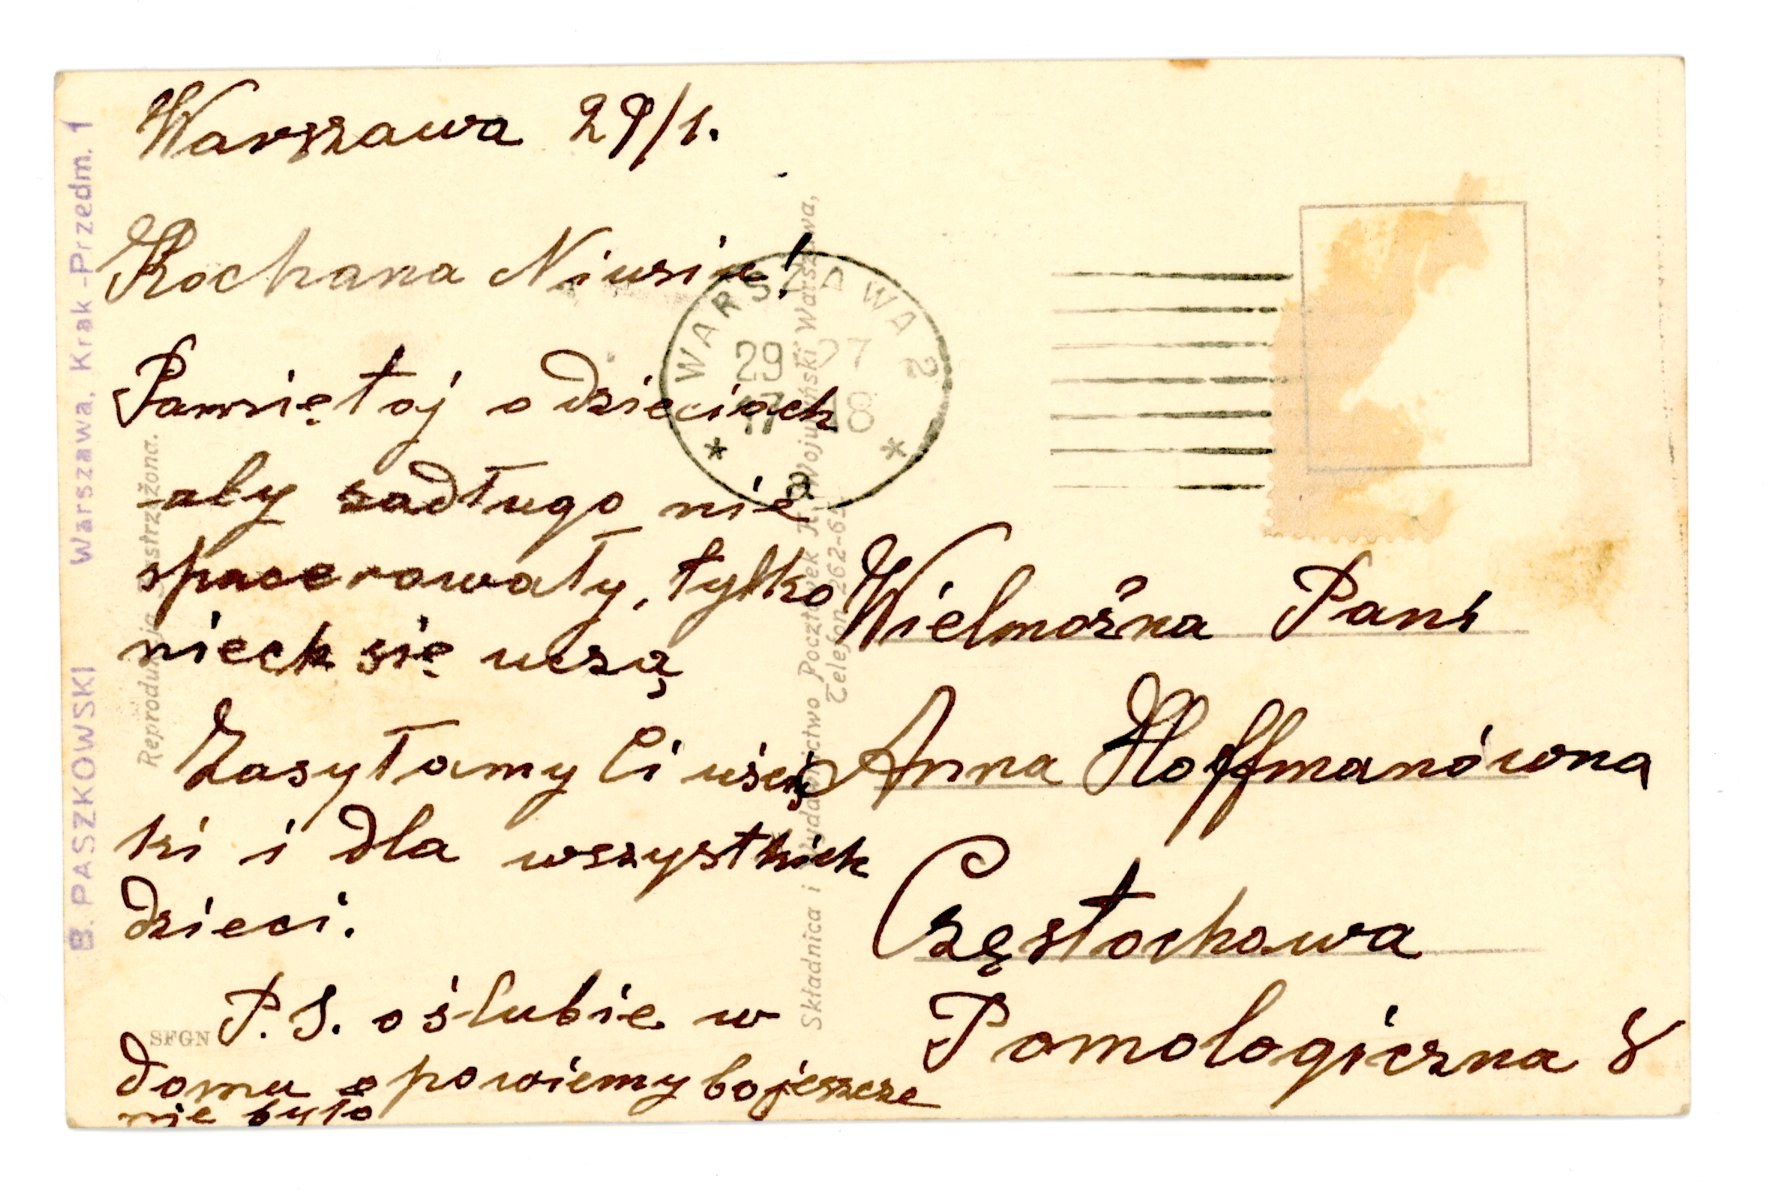 Warszawa 29/1.
Kochana Niusiu!
Pamiętaj o dzieciach
aby zadługo nie
spacerowały, tylko
niech się uczą
Zasyłamy Ci uścis
ki i dla wszystkich
dzieci.
P.S. o ślubie w
domu opowiemy bo jeszcze
nie było
Wielmożna Pani
Anna Hoffmanówna
Częstochowa
Pomologiczna 8
WARSZAWA 2
29 27
17 18
a
B. PASZKOWSKI Warszawa, Krak-Przedm. 1
Reprodukcja zastrzeżona.
Składnica i Wydawnictwo Pocztówek K. Wojutyński Warszawa,
Telefon 262-65
SFGN